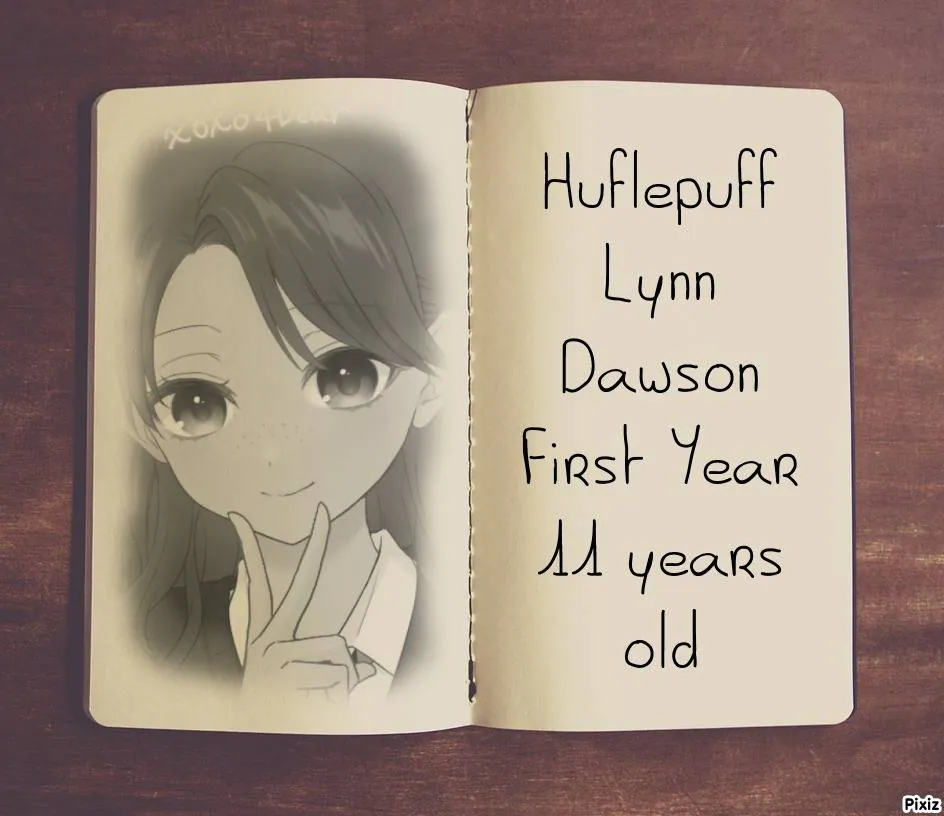 xoxo4Dear
Huflepuff
Lynn
Dawson
First Year
11 years
old
Pixiz